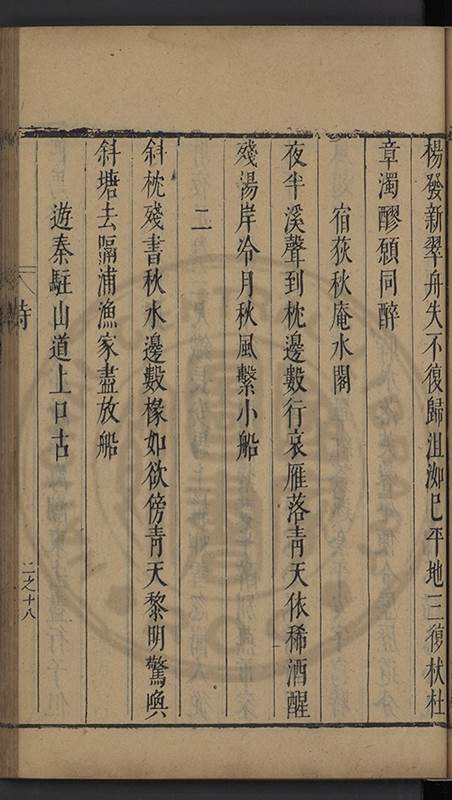 楊發新翠舟失不復歸沮洳已平地三復杕杜
章濁醪願同醉
宿荻秋庵水閣
夜半溪聲到枕邊數行哀雁落青天依稀酒醒
殘湯岸冷月秋風繫小船
二
斜枕殘書秋水邊數椽如欲傍青天黎明驚喚
斜塘去隔浦漁家盡放船
遊秦駐山道上口占
詩
二之十八